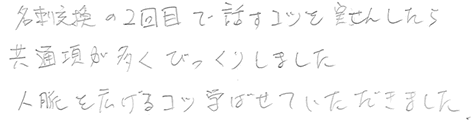 名刺交換の2回目で話すコツを実せんしたら
共通項が多くびっくりしました
人脈を広げるコツ学ばせていただきました。